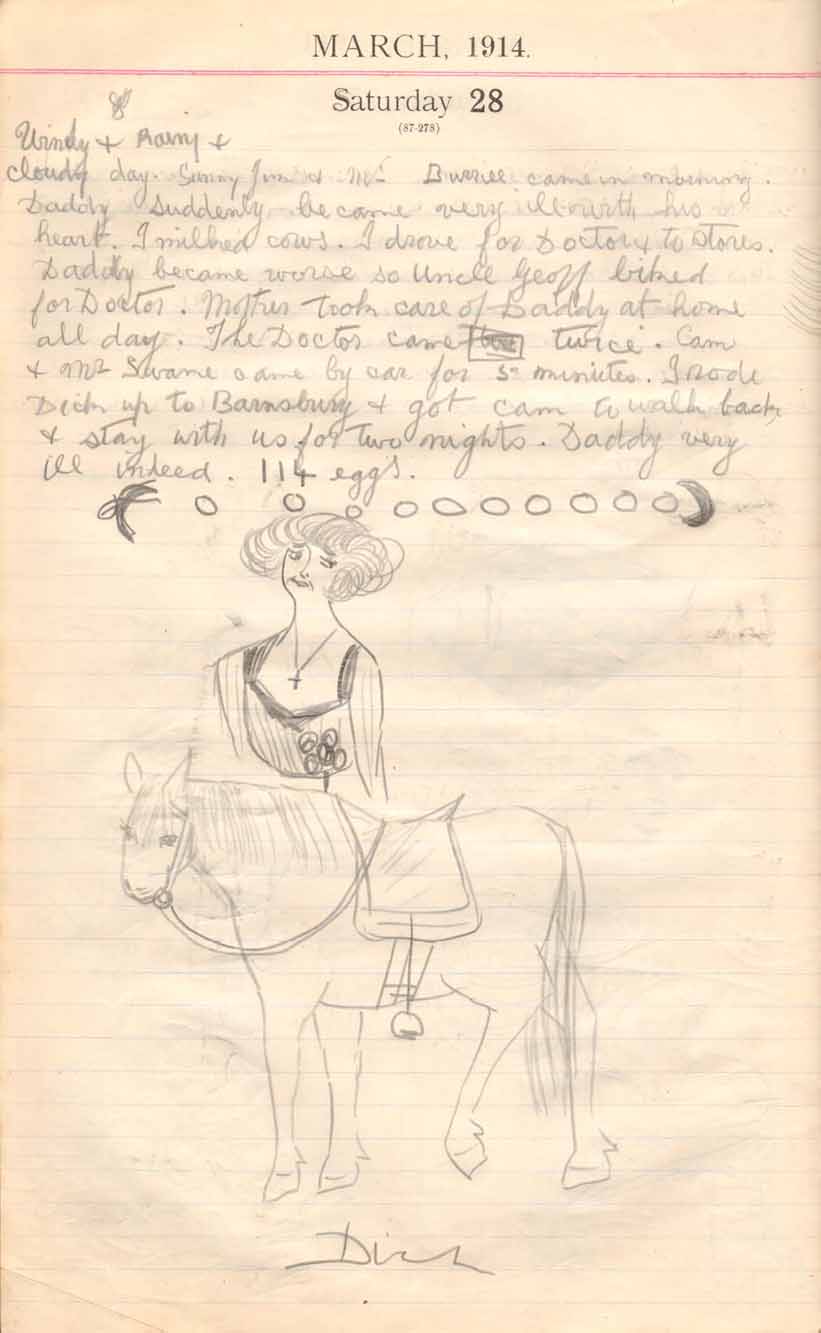 MARCH, 1914.
Saturday 28
(87-278)
Windy & Rainy &
cloudy day. Sunny Jim & Mr Burriee came in morning.
Daddy suddenly became very ill with his
heart. I milked cows. I drove for Doctor & to stores.
Daddy became worse so Uncle Geoff biked
for Doctor. Mother took care of Daddy at home
all day. The Doctor came twice. Cam
& Mr Swame came by car for 5 miniutes. I rode
Dick up to Barnsbury & got cam to walk back
& stay with us for two nights. Daddy very
ill indeed. 114 eggs.
Dick